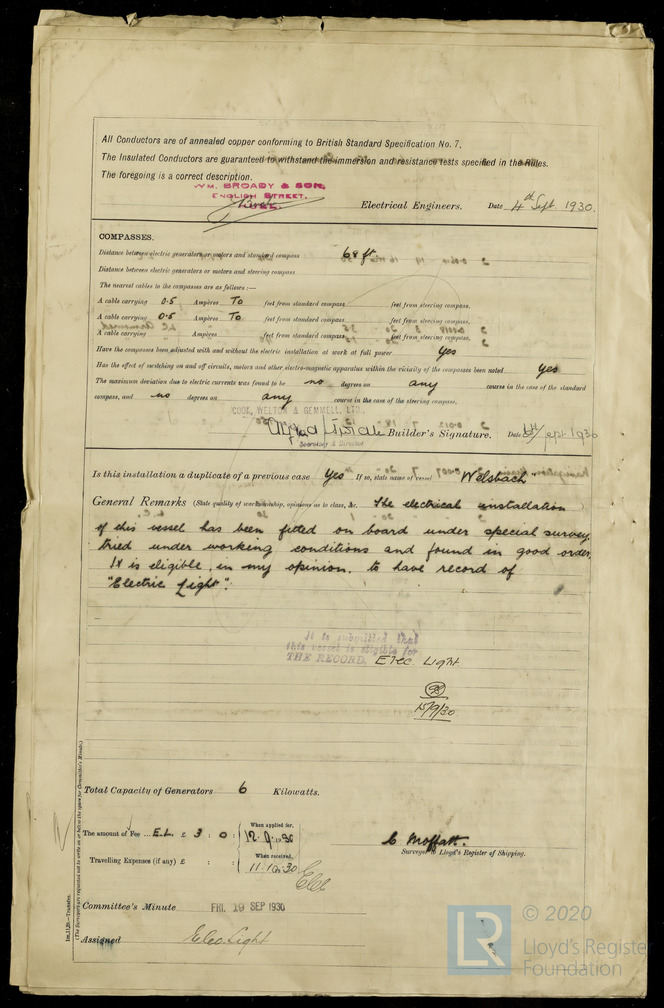 All Conductors are of annealed copper conforming to British Standard Specification No. 7.
The Insulated Conductors are guaranteed to withstand the immersion and resistance tests specified in the Rules.
The foregoing is a correct description.
WM. BROADY & SON,
ENGLISH STREET,
HULL.
Electrical Engineers. Date 4th Sept. 1930.
COMPASSES.
Distance between electric generators or motors and standard compass 68 ft
Distance between electric generators or motors and steering compass
The nearest cables to the compasses are as follows:—
A cable carrying 0.5 Ampères To feet from standard compass feet from steering compass.
A cable carrying 0.5 Ampères To feet from standard compass feet from steering compass.
A cable carrying Ampères feet from standard compass feet from steering compass.
Have the compasses been adjusted with and without the electric installation at work at full power Yes
Has the effect of switching on and off circuits, motors and other electro-magnetic apparatus within the vicinity of the compasses been noted Yes
The maximum deviation due to electric currents was found to be no degrees on any course in the case of the standard
compass, and no degrees on any course in the case of the steering compass.
COOK, WELTON & GEMMELL, LTD.
Builder's Signature. Date Sept 1930
Secretary & Director
Is this installation a duplicate of a previous case Yes If so, state name of vessel "Welsbach"
General Remarks (State quality of workmanship, opinions as to class, &c. The electrical installation
of this vessel has been fitted on board under special survey,
tried under working conditions and found in good order.
It is eligible, in my opinion, to have record of
"Electric Light".
It is submitted that
this vessel is eligible for
THE RECORD. Elec Light
15/9/30
Total Capacity of Generators 6 Kilowatts.
The amount of Fee ... E.L. £ 3 : 0 :
When applied for,
12.9.1930
Travelling Expenses (if any) £ : :
When received,
11.10.30
C Moffatt.
Surveyor to Lloyd's Register of Shipping.
Committee's Minute FRI. 19 SEP 1930
Assigned Elec Light
(The Surveyors are requested not to write on or below the space for Committee's Minute.)
© 2020
LR
Lloyd's Register
Foundation